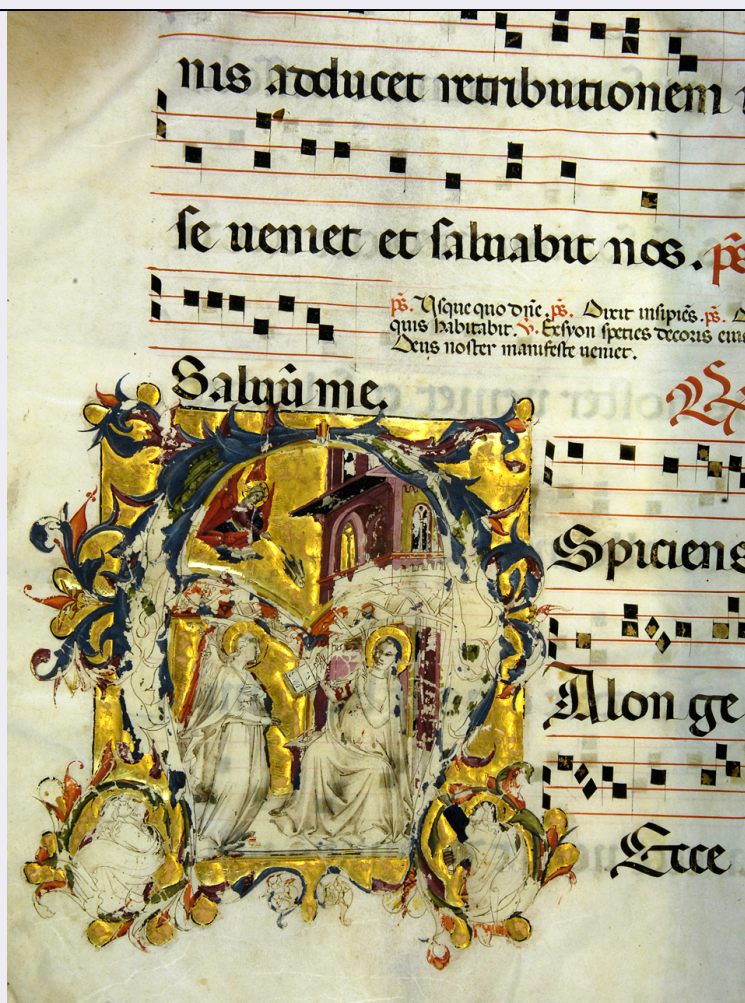 nis adducet retributionem
se ueniet et saluabit nos. ps
ps. Usque quo dn̄e. ps. Dixit insipiēs. ps.
quis habitabit. v. Exsyon species decoris eius
Deus noster manifeste ueniet.
Saluū me.
Spiciens
Alonge
Ecce